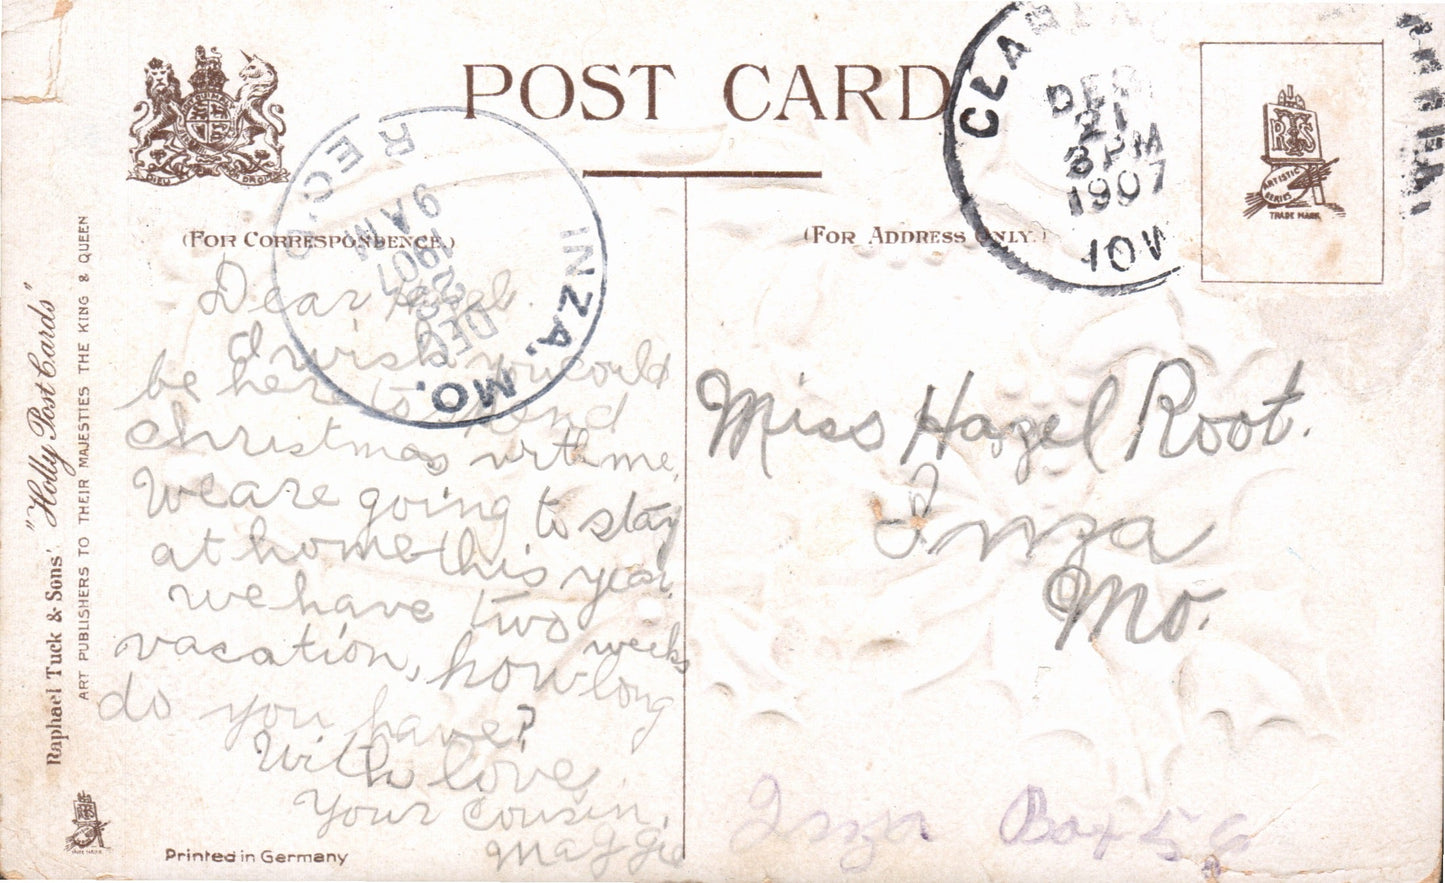 POST CARD
(FOR CORRESPONDENCE.)
(FOR ADDRESS ONLY.)
DIEU ET MON DROIT
REC'D
9 AM
1907
DEC
INZA, MO.
DEC
21
3 PM
1907
IOW
RTS
ARTISTIC
SERIES
TRADE MARK
Dear Hazel.
I wish you could
be here to spend
Christmas with me.
We are going to stay
at home this year.
We have two weeks
vacation, how long
do you have?
With love,
Your Cousin,
Maggie
Miss Hazel Root.
Inza
Mo.
Inza Box 56
Raphael Tuck & Sons' "Holly Post Cards"
ART PUBLISHERS TO THEIR MAJESTIES THE KING & QUEEN
Printed in Germany